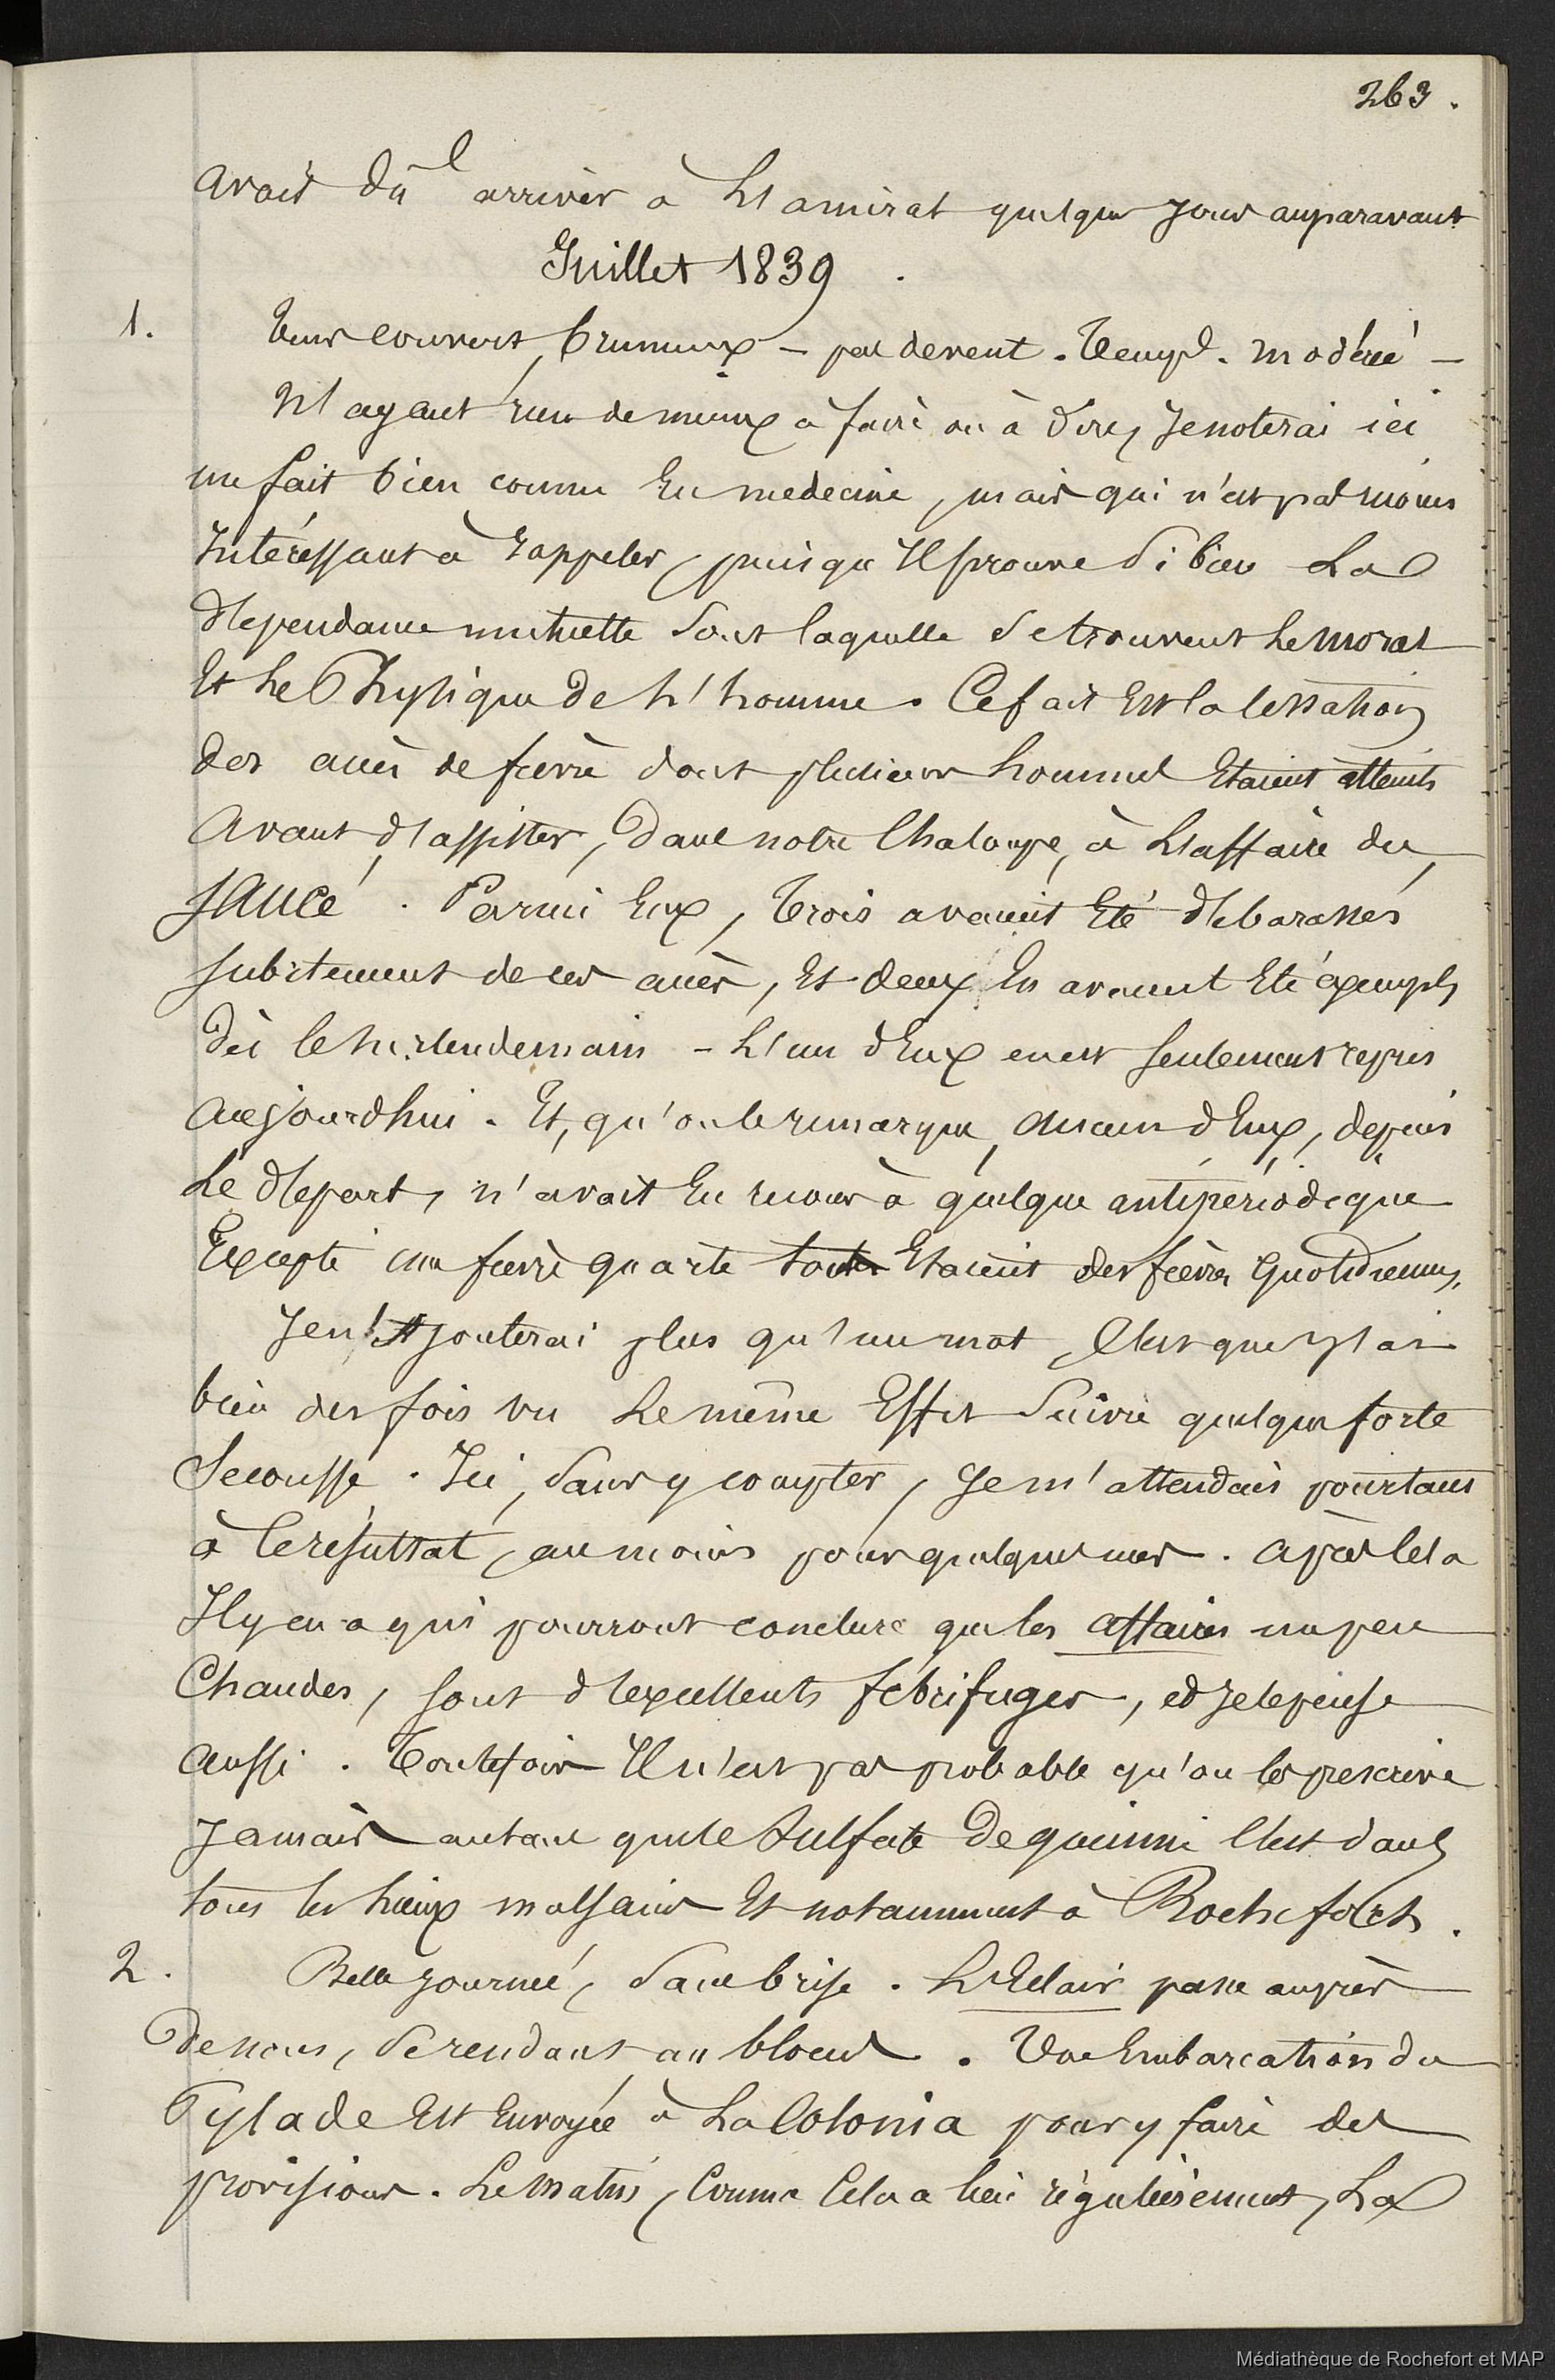 263.
avait dû arriver à l'amiral quelques jours auparavant
Juillet 1839.
1. Tems couvert, brumeux – pas de vent. Temp. modérée –
N'ayant rien de mieux à faire ou à dire, Je noterai ici
un fait bien connu En medecine, mais qui n'est pas moins
Intéressant à rappeler, puisqu'Il prouve si bien La
dépendance mutuelle sous laquelle se trouvent Le moral
Et Le Physique de L'homme. Ce fait Est la cessation
des accès de fièvre dont plusieurs hommes Etaient atteints
avant d'assister, dans notre Chaloupe, à L'affaire du
Saucé. Parmi Eux, Trois avaient Eté débarassés
subitement de ces accès, Et deux En avaient Eté exempts
dès le surlendemain – L'un d'Eux en est seulement repris
aujourd'hui. Et, qu'on le remarque, aucun d'Eux, depuis
Le départ, n'avait Eu recours à quelque antipériodique
Excepté une fièvre quarte toutes Etaient des fièvres Quotidiennes,
Je n'Ajouterai plus qu'un mot, C'est que J'ai
bien des fois vu Le même Effet suivre quelque forte
Secousse. Ici, sans y compter, Je m'attendais pourtant
à Ce résultat, au moins pour quelques uns. après Cela
Il y en a qui pourront conclure que les affaires un peu
Chaudes, sont d'excellents fébrifuges, et Je le pense
aussi. Toutefois Il n'est pas probable qu'on les prescrive
Jamais autant que le Sulfate de quinine C'est dans
tous les Lieux malsains Et notamment à Rochefort.
2. Belle Journée, Sans brise. L'Eclair passe auprès
de nous, se rendant au blocus. Une Embarcation du
Pylade Est Envoyée à La Colonia pour y faire des
provisions. Le matin, Comme Cela a lieu régulièrement, La
Médiathèque de Rochefort et MAP